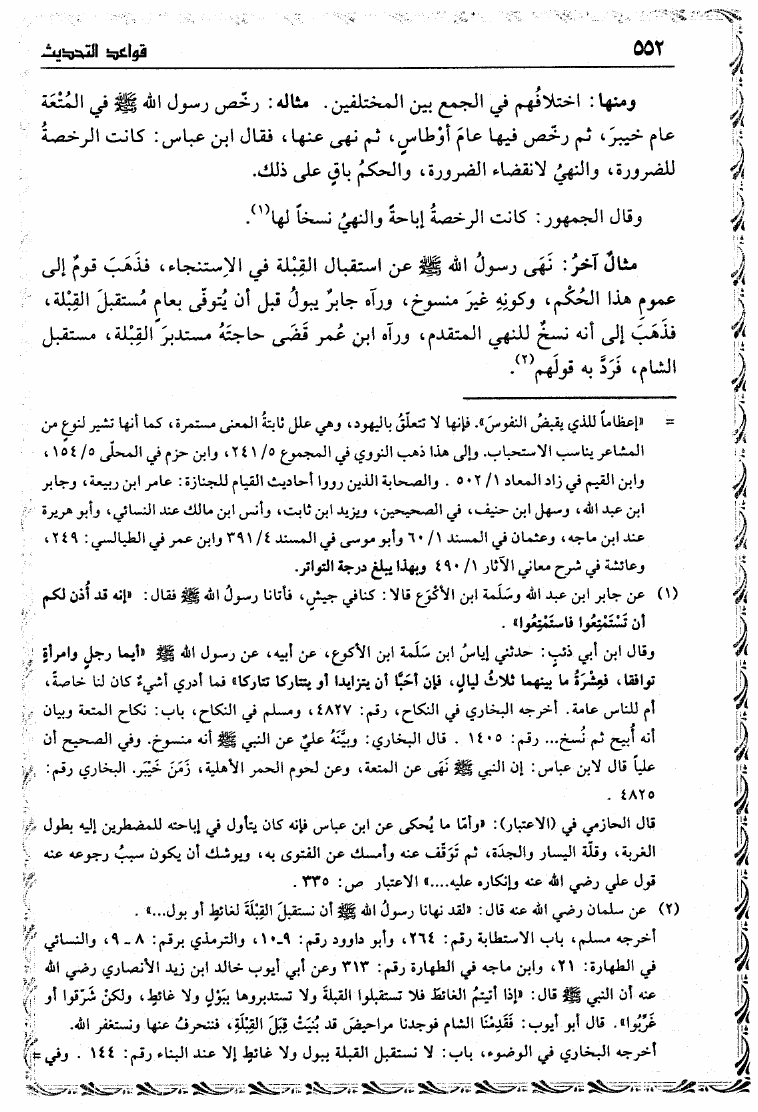 ٥٥٢ قواعد التحديث
ومنها: اختلافُهم في الجمع بين المختلفين. مثاله: رخّص رسول الله ﷺ في المُتْعَة
عام خيبرَ، ثم رخّص فيها عامَ أوْطاسٍ، ثم نهى عنها، فقال ابن عباس: كانت الرخصةُ
للضرورة، والنهيُ لانقضاء الضرورة، والحكمُ باقٍ على ذلك.
وقال الجمهور: كانت الرخصةُ إباحةً والنهيُ نسخاً لها(١).
مثالٌ آخرُ: نَهَى رسولُ الله ﷺ عن استقبال القِبْلة في الاِستنجاء، فذَهَبَ قومٌ إلى
عمومِ هذا الحُكْم، وكونِهِ غيرَ منسوخ، ورآه جابرٌ يبولُ قبل أن يُتوفّى بعامٍ مُستقبلَ القِبْلة،
فذَهَبَ إلى أنه نسخٌ للنهي المتقدم، ورآه ابن عُمر قَضَى حاجتَهُ مستدبرَ القِبْلة، مستقبل
الشام، فَرَدَّ به قولَهم(٢).
= «إعظاماً للذي يقبضُ النفوسَ». فإنها لا تتعلّقُ باليهود، وهي علل ثابتةُ المعنى مستمرة، كما أنها تشير لنوعٍ من
المشاعر يناسب الاستحباب. وإلى هذا ذهب النووي في المجموع ٢٤١/٥، وابن حزم في المحلّى ١٥٤/٥،
وابن القيم في زاد المعاد ٥٠٢/١ . والصحابة الذين رووا أحاديث القيام للجنازة: عامر ابن ربيعة، وجابر
ابن عبد الله، وسهل ابن حنيف، في الصحيحين، ويزيد ابن ثابت، وأنس ابن مالك عند النسائي، وأبو هريرة
عند ابن ماجه، وعثمان في المسند ٦٠/١ وأبو موسى في المسند ٣٩١/٤ وابن عمر في الطيالسي: ٢٤٩،
وعائشة في شرح معاني الآثار ٤٩٠/١ وبهذا يبلغ درجة التواتر.
(١) عن جابر ابن عبد الله وسَلَمة ابن الأكْوَع قالا: كنافي جيشٍ، فأتانا رسولُ الله ﷺ فقال: «إنه قد أُذن لكم
أن تَسْتَمْتِعُوا فاستَمْتِعُوا» .
وقال ابن أبي ذئبٍ: حدثني إياسُ ابن سَلَمة ابن الأكوع، عن أبيه، عن رسول الله ﷺ «أيما رجلٍ وامرأةٍ
توافقا، فعِشْرَةُ ما بينهما ثلاثُ ليالٍ، فإن أحَبَّا أن يتزايدا أو يتتاركا تتاركا» فما أدري أشيءٌ كان لنا خاصةً،
أم للناس عامة. أخرجه البخاري في النكاح، رقم: ٤٨٢٧، ومسلم في النكاح، باب: نكاح المتعة وبيان
أنه أُبيح ثم نُسخ... رقم: ١٤٠٥ . قال البخاري: وبيَّنَهُ عليٌ عن النبي ﷺ أنه منسوخ. وفي الصحيح أن
علياً قال لابن عباس: إن النبي ﷺ نَهَى عن المتعة، وعن لحوم الحمر الأهلية، زَمَنَ خَيْبَر. البخاري رقم:
٤٨٢٥ .
قال الحازمي في (الاعتبار): «وأمّا ما يُحكى عن ابن عباس فإنه كان يتأول في إباحته للمضطرين إليه بطول
الغربة، وقلّة اليسار والجِدَة، ثم تَوَقّف عنه وأمسك عن الفتوى به، ويوشك أن يكون سببُ رجوعه عنه
قول علي رضي الله عنه وإنكاره عليه....» الاعتبار ص: ٣٣٥ .
(٢) عن سلمان رضي الله عنه قال: «لقد نهانا رسولُ الله ﷺ أن نستقبلَ القِبْلَةَ لغائطٍ أو بول...» .
أخرجه مسلم، باب الاستطابة رقم: ٢٦٤، وأبو داوود رقم: ٩-١٠، والترمذي برقم: ٨ - ٩، والنسائي
في الطهارة: ٢١، وابن ماجه في الطهارة رقم: ٣١٣ وعن أبي أيوب خالد ابن زيد الأنصاري رضي الله
عنه أن النبي ﷺ قال: «إذا أتيتمُ الغائطَ فلا تستقبلوا القبلةَ ولا تستدبروها ببَوْلٍ ولا غائطٍ، ولكنْ شَرّقوا أو
غَرّبُوا». قال أبو أيوب: فَقَدِمْنَا الشام فوجدنا مراحيضَ قد بُنيَتْ قِبَلَ القِبْلَةِ، فننحرفُ عنها ونستغفر الله.
أخرجه البخاري في الوضوء، باب: لا نستقبل القبلة ببول ولا غائطٍ إلا عند البناء رقم: ١٤٤ . وفي=